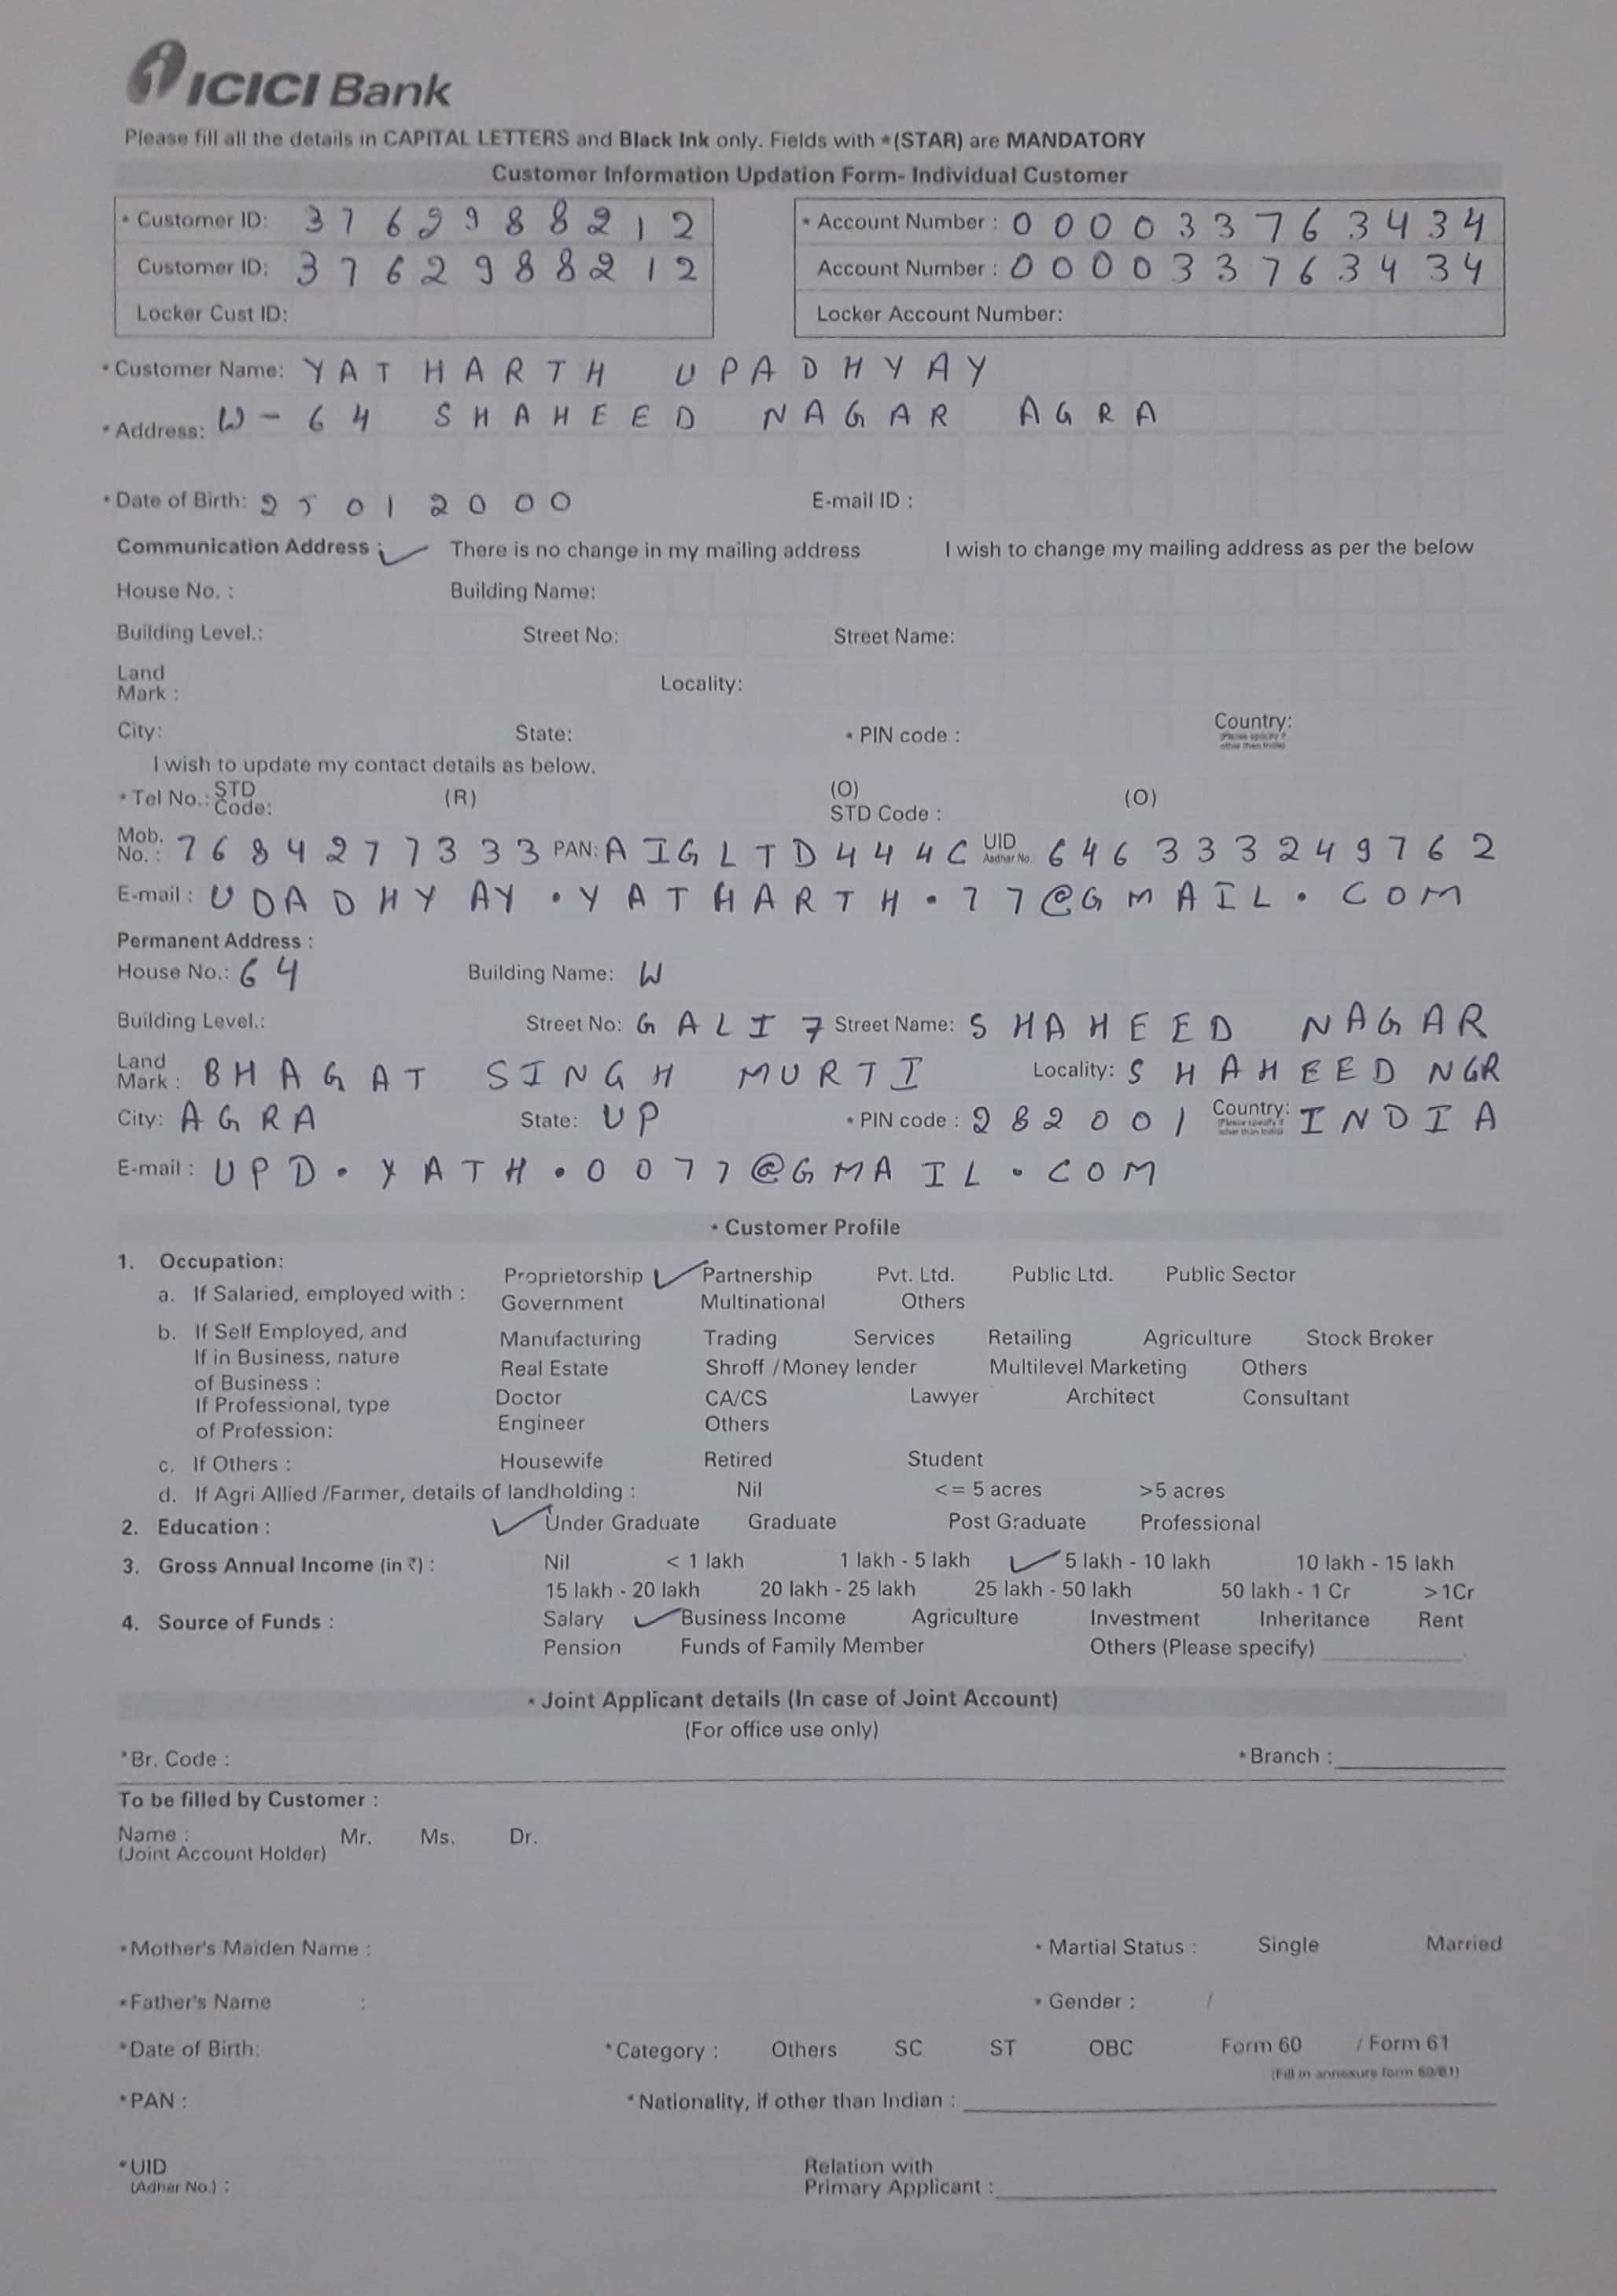 ICICI Bank
Please fill all the details in CAPITAL LETTERS and Black Ink only. Fields with *(STAR) are MANDATORY
Customer Information Updation Form- Individual Customer
* Customer ID: 3762988212 * Account Number : 000033763434
Customer ID: 3762988212 Account Number : 000033763434
Locker Cust ID: Locker Account Number:
* Customer Name: YATHARTH UPADHYAY
* Address: W-64 SHAHEED NAGAR AGRA
* Date of Birth: 25012000 E-mail ID :
Communication Address : ✓ There is no change in my mailing address I wish to change my mailing address as per the below
House No. : Building Name:
Building Level.: Street No: Street Name:
Land Mark : Locality:
City: State: * PIN code : Country: (Please specify if other than India)
I wish to update my contact details as below.
* Tel No.: STD Code: (R) (O) STD Code : (O)
Mob. No. : 7684277333 PAN: AIGLTD444C UID Aadhar No. 646333249762
E-mail : UDADHYAY.YATHARTH.77@GMAIL.COM
Permanent Address :
House No.: 64 Building Name: W
Building Level.: Street No: GALI 7 Street Name: SHAHEED NAGAR
Land Mark : BHAGAT SINGH MURTI Locality: SHAHEED NGR
City: AGRA State: UP * PIN code : 282001 Country: (Please specify if other than India) INDIA
E-mail : UPD.YATH.0077@GMAIL.COM
* Customer Profile
1. Occupation:
a. If Salaried, employed with : Proprietorship ✓ Partnership Pvt. Ltd. Public Ltd. Public Sector
Government Multinational Others
b. If Self Employed, and If in Business, nature of Business : Manufacturing Trading Services Retailing Agriculture Stock Broker
Real Estate Shroff /Money lender Multilevel Marketing Others
If Professional, type of Profession: Doctor CA/CS Lawyer Architect Consultant
Engineer Others
c. If Others : Housewife Retired Student
d. If Agri Allied /Farmer, details of landholding : Nil <= 5 acres >5 acres
2. Education : ✓ Under Graduate Graduate Post Graduate Professional
3. Gross Annual Income (in ₹) : Nil < 1 lakh 1 lakh - 5 lakh ✓ 5 lakh - 10 lakh 10 lakh - 15 lakh
15 lakh - 20 lakh 20 lakh - 25 lakh 25 lakh - 50 lakh 50 lakh - 1 Cr >1Cr
4. Source of Funds : Salary ✓ Business Income Agriculture Investment Inheritance Rent
Pension Funds of Family Member Others (Please specify)
* Joint Applicant details (In case of Joint Account)
(For office use only)
*Br. Code : * Branch :
To be filled by Customer :
Name : Mr. Ms. Dr.
(Joint Account Holder)
*Mother's Maiden Name : * Martial Status : Single Married
*Father's Name : * Gender : /
*Date of Birth: *Category : Others SC ST OBC Form 60 / Form 61
(Fill in annexure form 60/61)
*PAN : *Nationality, if other than Indian :
*UID (Adhar No.) : Relation with Primary Applicant :